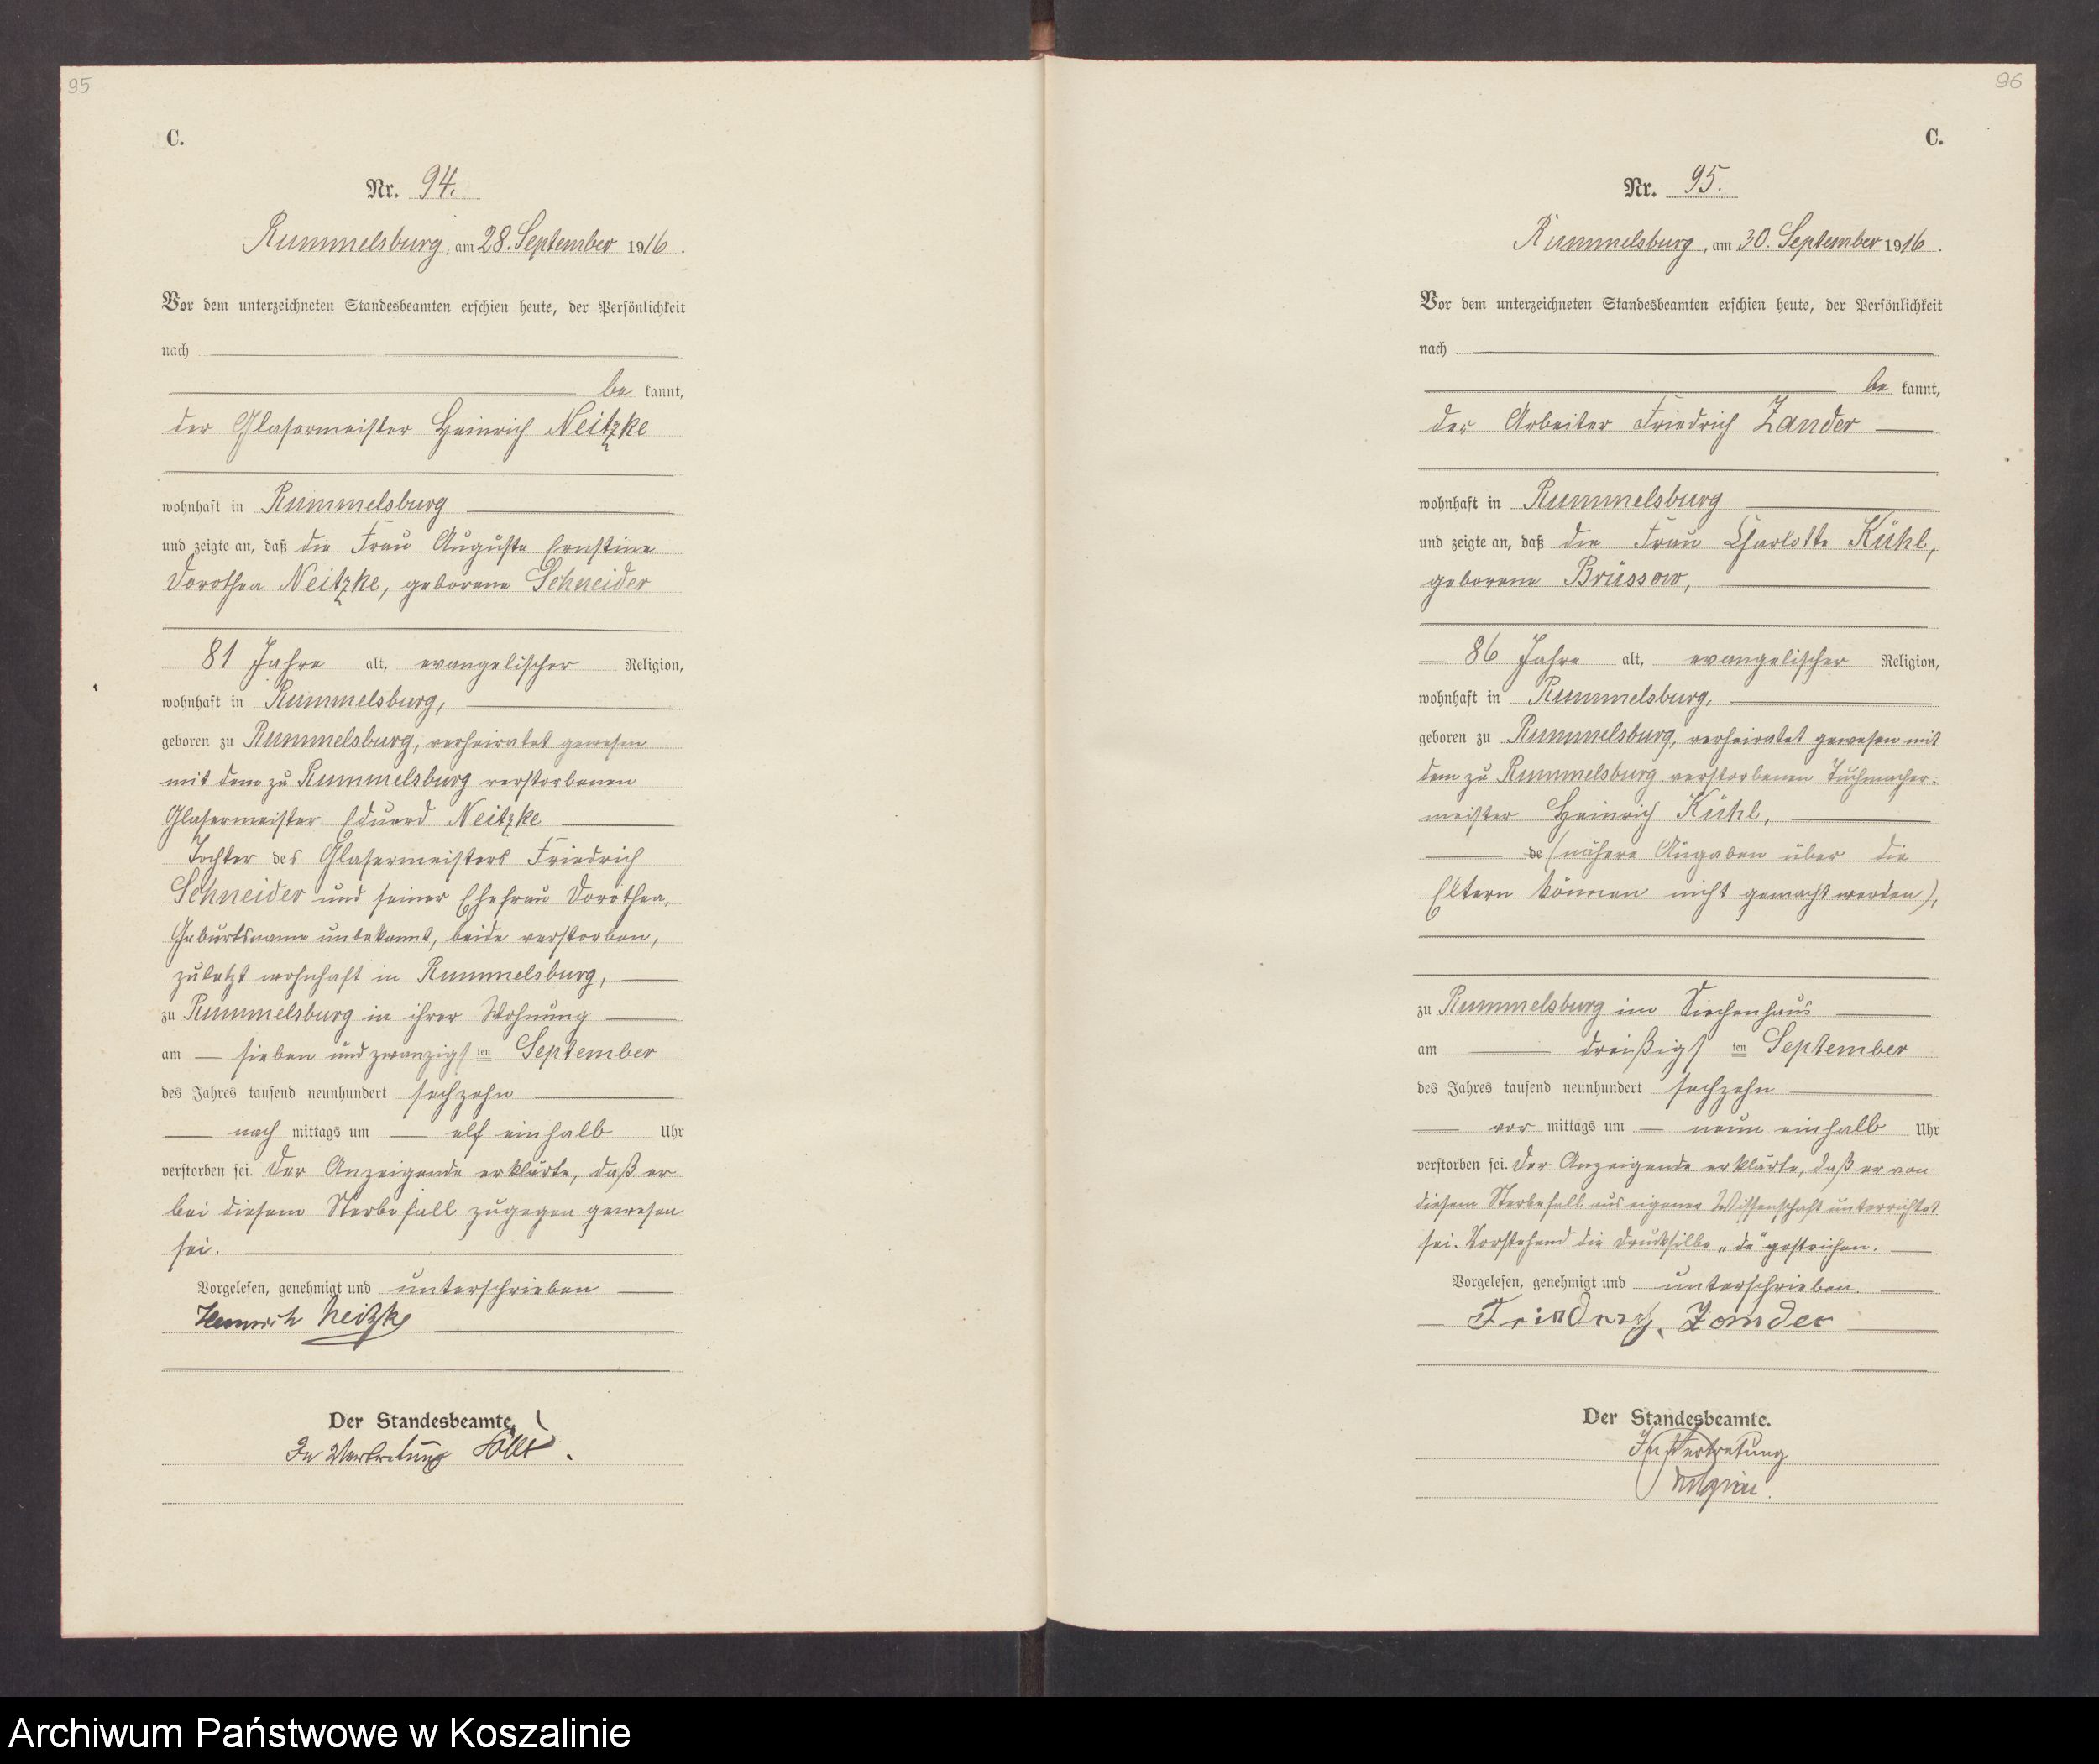 95
C.
Nr. 94.
Rummelsburg, am 28. September 1916.
Vor dem unterzeichneten Standesbeamten erschien heute, der Persönlichkeit
nach
be kannt,
der Glasermeister Heinrich Neitzke
wohnhaft in Rummelsburg
und zeigte an, daß die Frau Auguste Ernstine
Dorothea Neitzke, geborene Schneider
81 Jahre alt, evangelischer Religion,
wohnhaft in Rummelsburg,
geboren zu Rummelsburg, verheiratet gewesen
mit dem zu Rummelsburg verstorbenen
Glasermeister Eduard Neitzke
Tochter des Glasermeisters Friedrich
Schneider und seiner Ehefrau Dorothea,
Geburtsname unbekannt, beide verstorben,
zuletzt wohnhaft in Rummelsburg,
zu Rummelsburg in ihrer Wohnung
am sieben und zwanzigsten September
des Jahres tausend neunhundert sechzehn
nach mittags um elf einhalb Uhr
verstorben sei. Der Anzeigende erklärte, daß er
bei diesem Sterbefall zugegen gewesen
sei.
Vorgelesen, genehmigt und unterschrieben
Heinrich Neitzke
Der Standesbeamte.
In Vertretung
96
C.
Nr. 95.
Rummelsburg, am 30. September 1916.
Vor dem unterzeichneten Standesbeamten erschien heute, der Persönlichkeit
nach
be kannt,
der Arbeiter Friedrich Zander
wohnhaft in Rummelsburg
und zeigte an, daß die Frau Charlotte Kühl,
geborene Brüssow,
86 Jahre alt, evangelischer Religion,
wohnhaft in Rummelsburg,
geboren zu Rummelsburg, verheiratet gewesen mit
dem zu Rummelsburg verstorbenen Tuchmacher-
meister Heinrich Kühl,
de (nähere Angaben über die
Eltern können nicht gemacht werden),
zu Rummelsburg im Siechenhaus
am dreißigsten September
des Jahres tausend neunhundert sechzehn
vor mittags um neun einhalb Uhr
verstorben sei. Der Anzeigende erklärte, daß er von
diesem Sterbefall aus eigener Wissenschaft unterrichtet
sei. Vorstehend die Drucksilbe „de" gestrichen.
Vorgelesen, genehmigt und unterschrieben.
Friedrich Zander
Der Standesbeamte.
In Vertretung
Archiwum Państwowe w Koszalinie